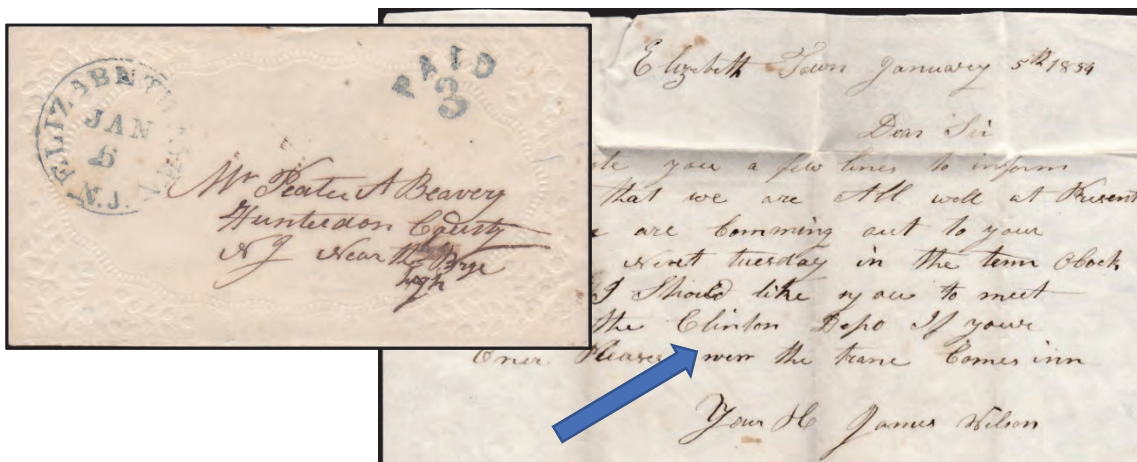 ELIZABETH
N.J.
JAN
PAID
3
Mr Peater A Beavery
Hunterdon County
N J Near the
Elizebeth Town January 5th 1854
Dear Sir
you a few lines to inform
that we are All well at Present
are Comming out to your
Next tuesday in the tenn Olock
I Should like you to meet
the Clinton Depo If youre
Please wen the trane Comes inn
Your H James Wilson